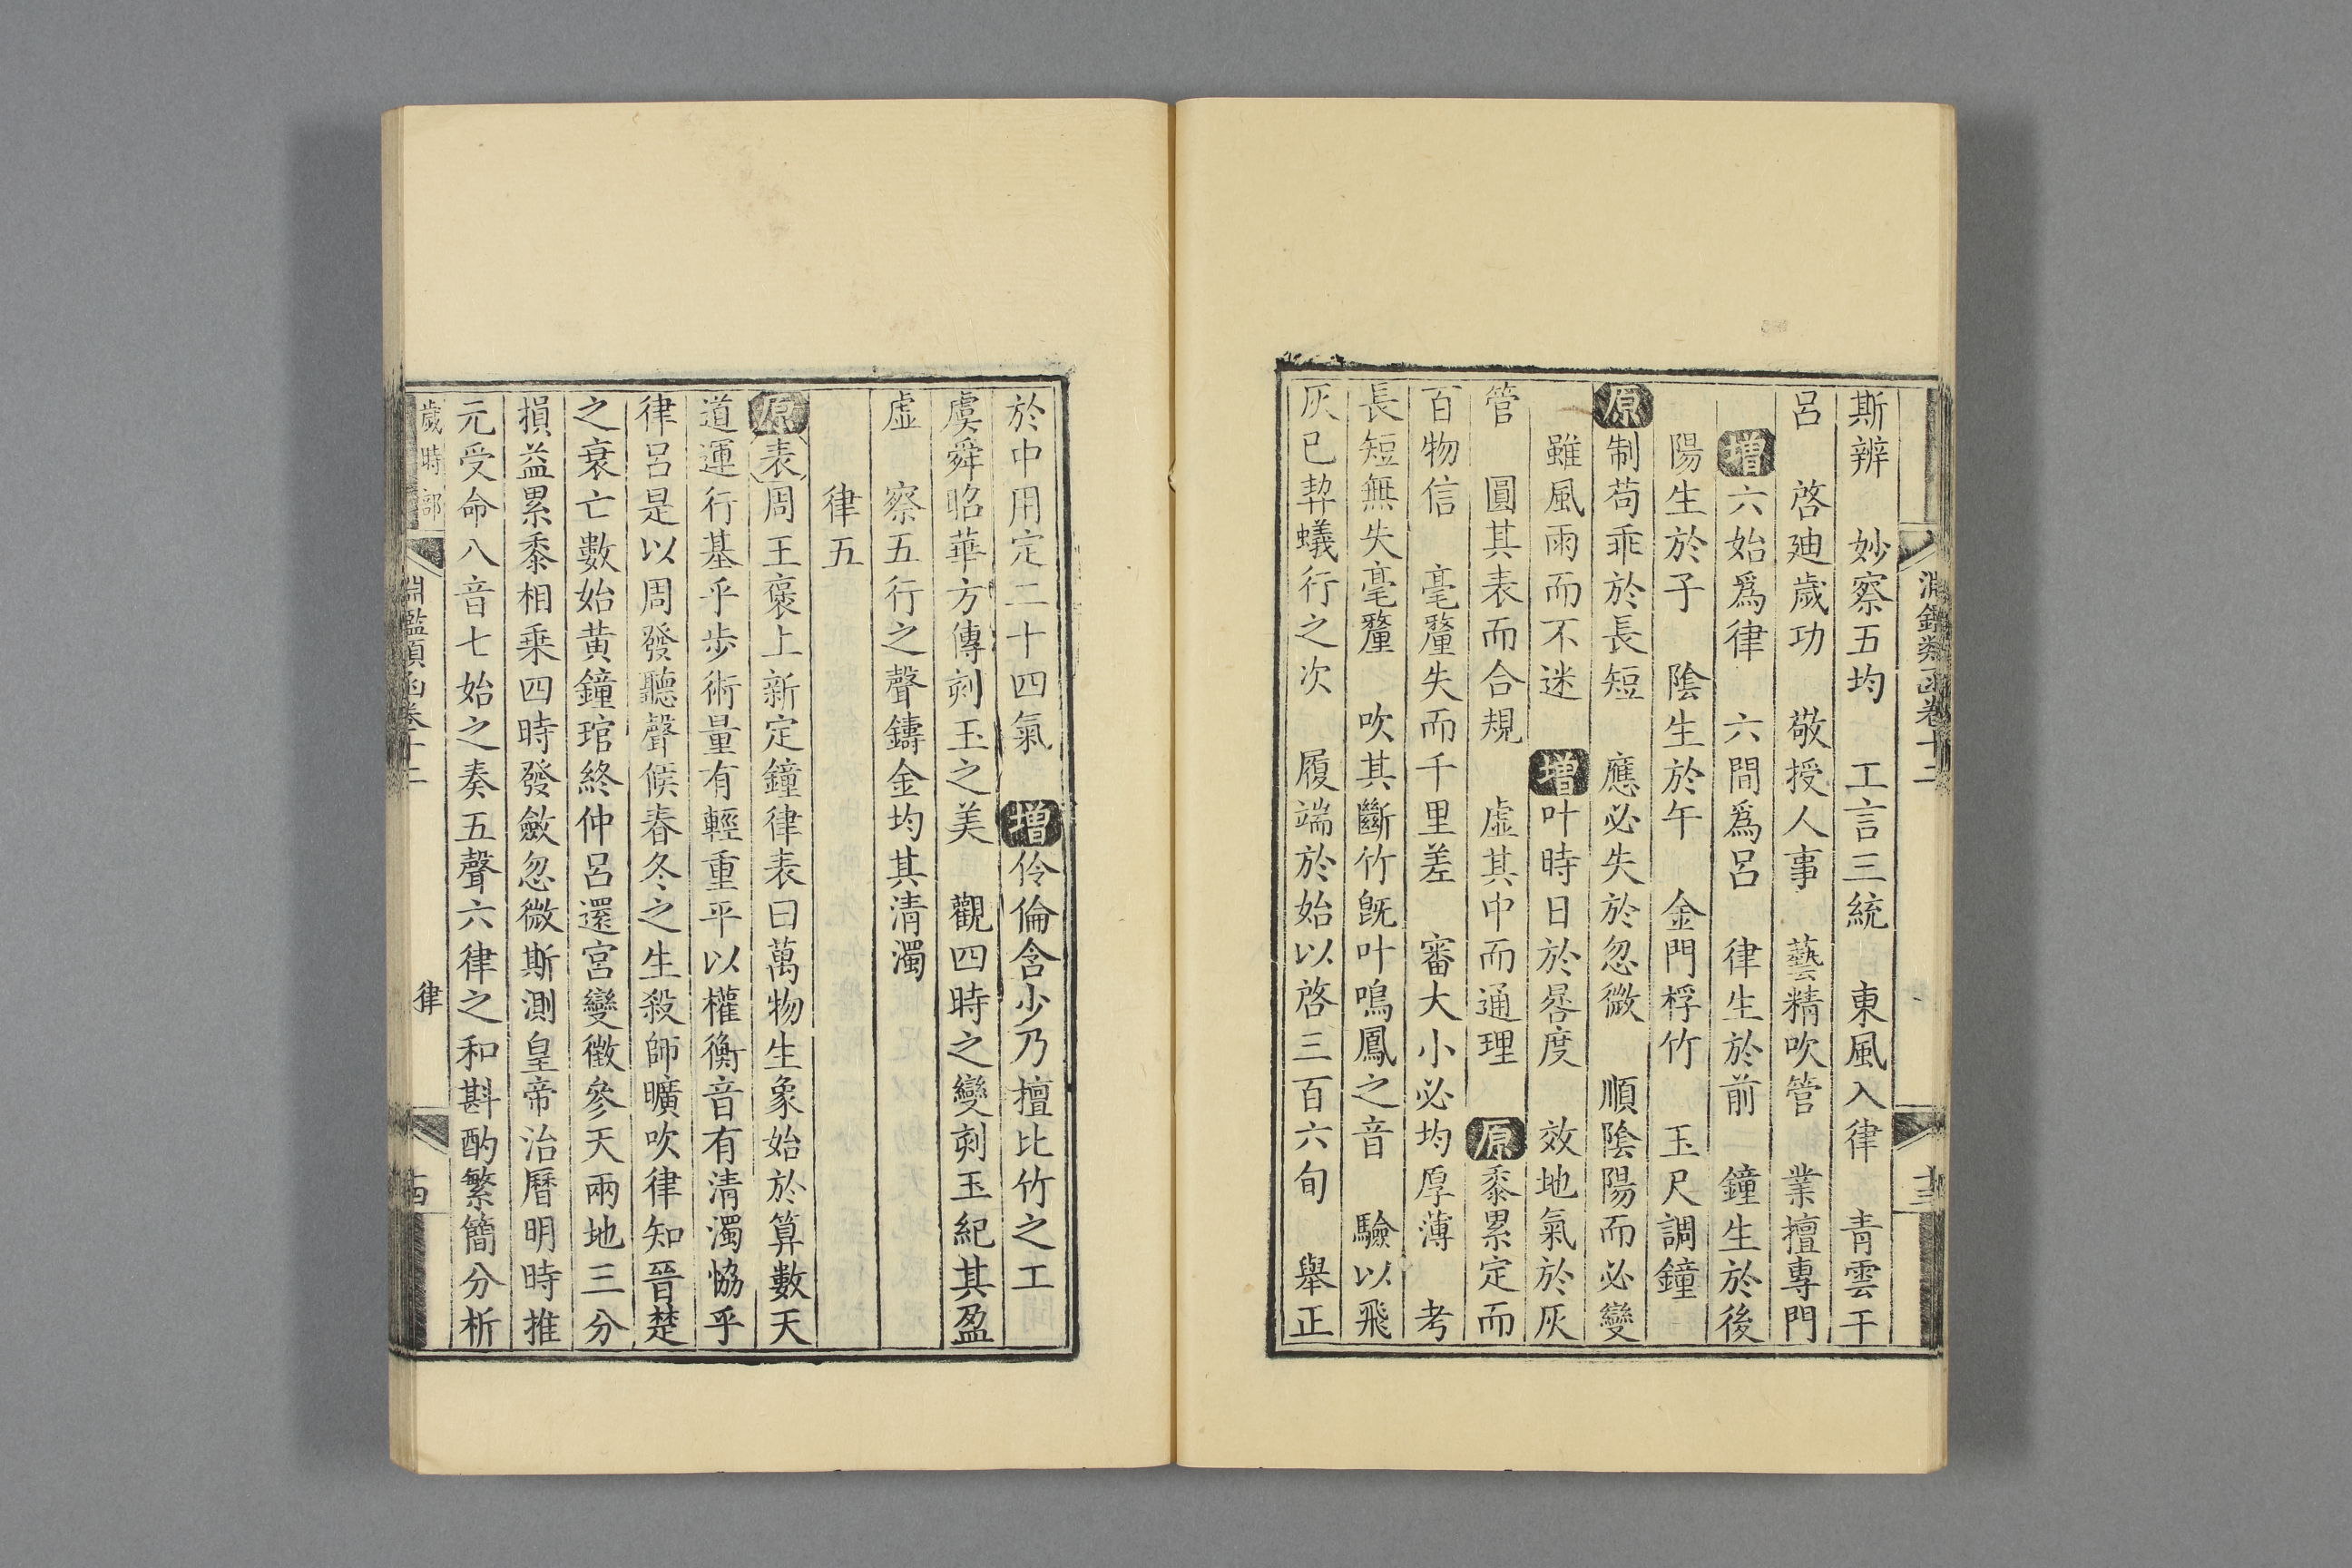 淵鑑類函卷十二
十三
斯辨　妙察五均　工言三統　東風入律　青雲干
呂　啓廸歲功　敬授人事　藝精吹管　業擅專門
增六始爲律　六間爲呂　律生於前　鐘生於後
陽生於子　陰生於午　金門桴竹　玉尺調鐘
原制苟乖於長短　應必失於忽微　順陰陽而必變
雖風雨而不迷　增叶時日於晷度　效地氣於灰
管　圓其表而合規　虛其中而通理　原黍累定而
百物信　毫釐失而千里差　審大小必均厚薄　考
長短無失毫釐　吹其斷竹旣叶鳴鳳之音　驗以飛
灰已契蟻行之次　履端於始以啓三百六旬　舉正
於中用定二十四氣　增伶倫含少乃擅比竹之工
虞舜昭華方傳刻玉之美　觀四時之變刻玉紀其盈
虛　察五行之聲鑄金均其清濁
律五
原表周王褒上新定鐘律表曰萬物生象始於算數天
道運行基乎步術量有輕重平以權衡音有清濁恊乎
律呂是以周發聽聲候春冬之生殺師曠吹律知晉楚
之衰亡數始黃鐘琯終仲呂還宮變徵參天兩地三分
損益累黍相乘四時發斂忽微斯測皇帝治曆明時推
元受命八音七始之奏五聲六律之和斟酌繁簡分析
歲時部
淵鑑類函卷十二
律
十四